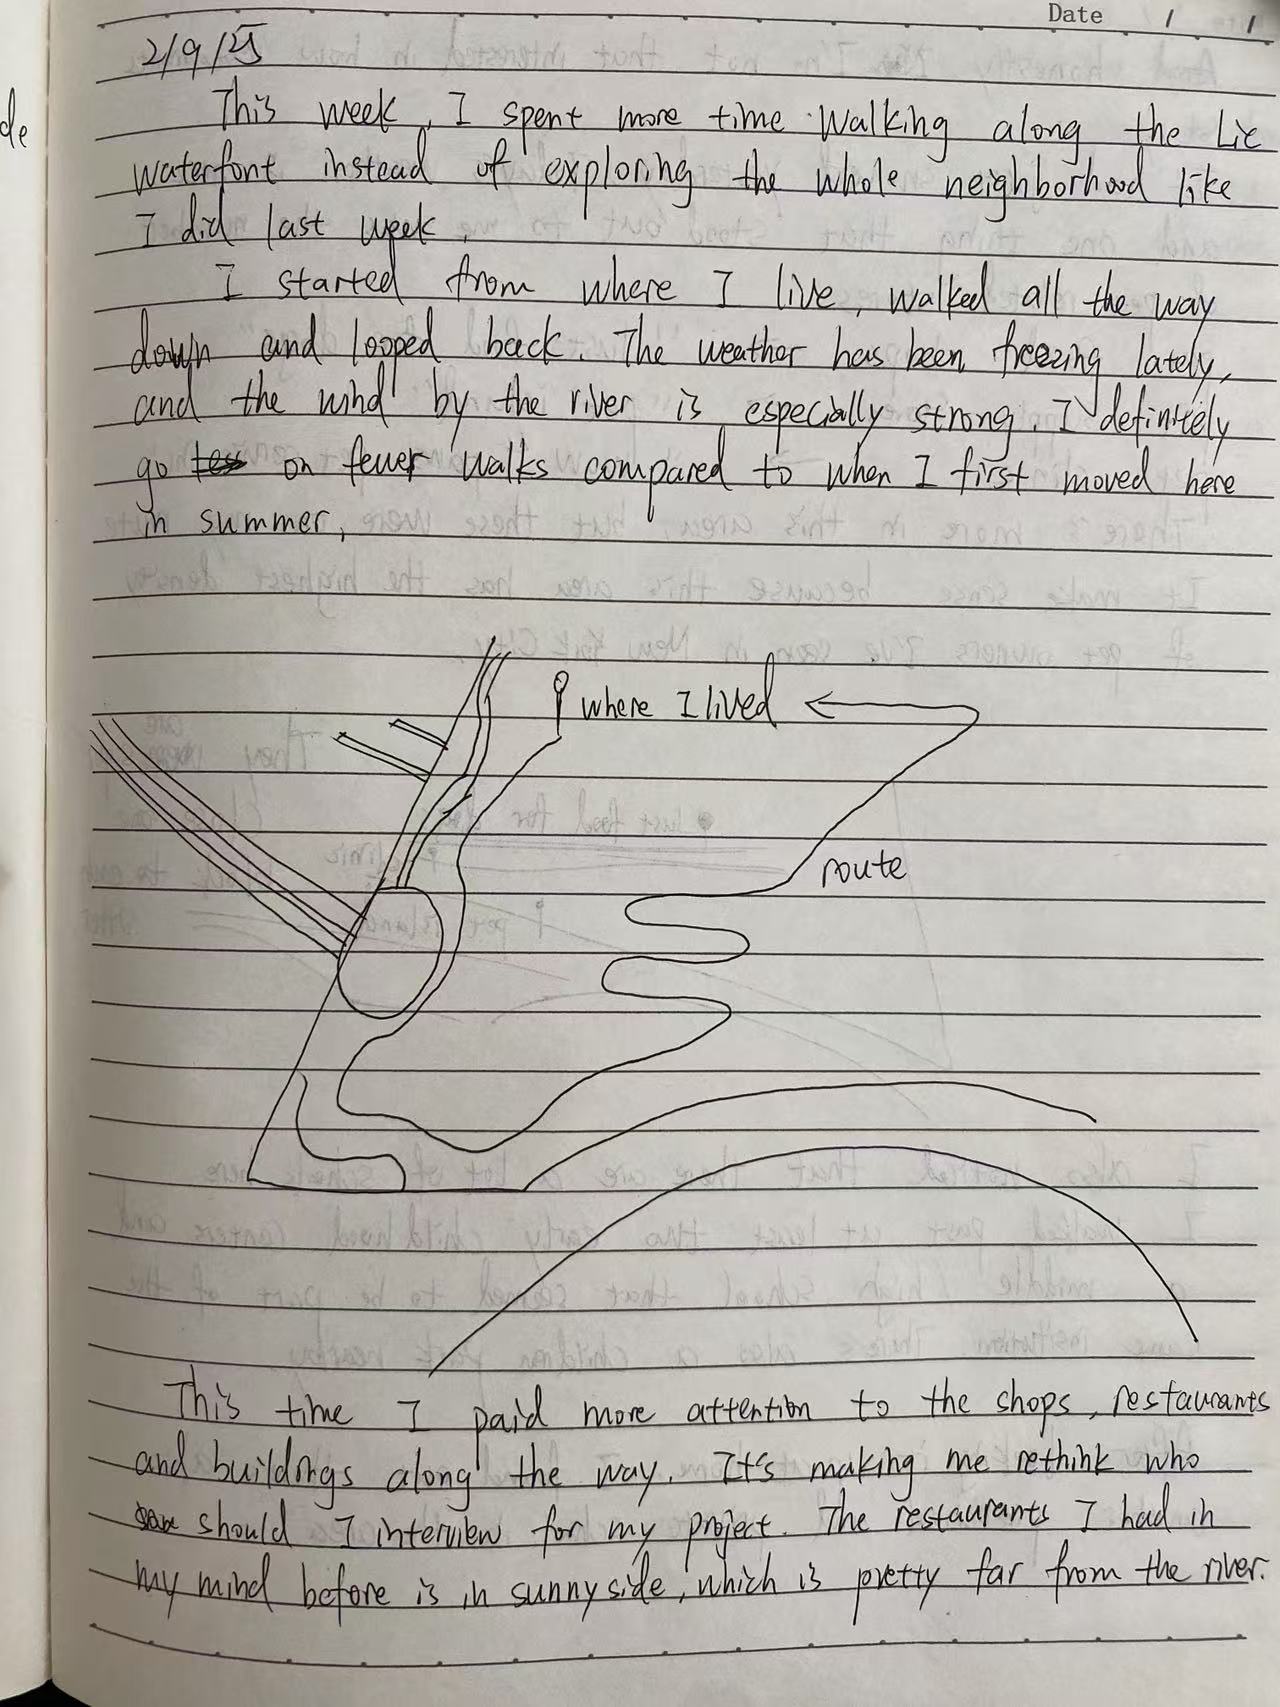 Date / /
2/9/25
This week, I spent more time walking along the Lic
waterfont instead of exploring the whole neighborhood like
I did last week.
I started from where I live, walked all the way
down and looped back. The weather has been freezing lately,
and the wind by the river is especially strong. I definitely
go on fewer walks compared to when I first moved here
in summer.
where I lived
route
This time I paid more attention to the shops, restaurants
and buildings along the way. It's making me rethink who
should I interview for my project. The restaurants I had in
my mind before is in sunnyside, which is pretty far from the river.
de